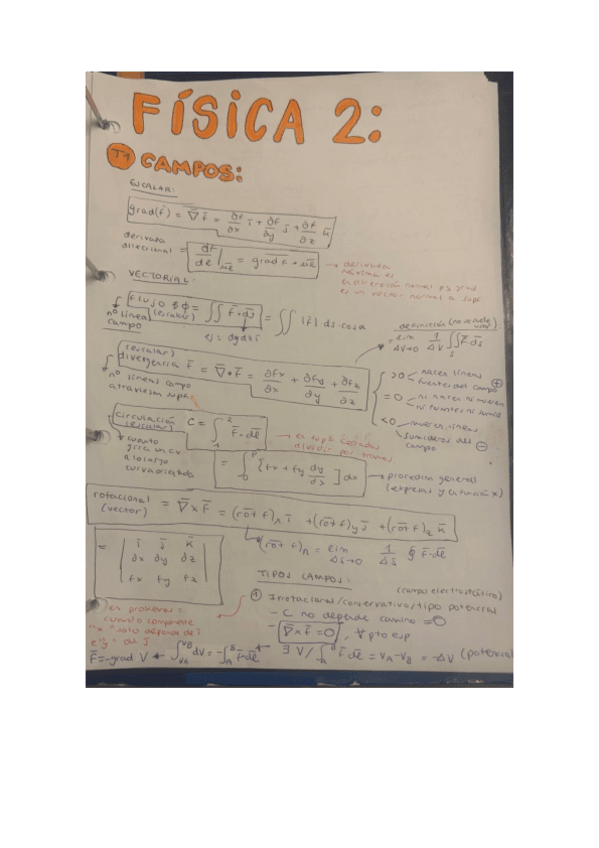 FÍSICA 2:
T1 CAMPOS:
ESCALAR:
grad(f) = ∇f = ∂f/∂x i + ∂f/∂y j + ∂f/∂z k
derivada direccional = df/de|ue = grad f · ue
→ derivada máxima es
VECTORIAL:
flujo (escalar) Φ = ∬ F·ds = ∬ |F| ds · cosα
nº líneas campo
ej = dydz i
definición (no se suele usar)
= lim ΔV→0 1/ΔV ∬s F ds
(escalar) divergencia F = ∇·F = ∂fx/∂x + ∂fy/∂y + ∂fz/∂z
nº líneas campo atraviesan supf.
>0 nacen líneas fuentes del campo ⊕
=0 ni nacen ni mueren ni fuentes ni sumid
<0 mueren líneas sumideros del campo ⊖
circulación (escalar) C = ∫₁² F·de
→ en supf. cerradas dividir por tramos
cuanto gira un c.v. a lo largo curva orientada
= ∫₀ᴾ [fx + fy dy/dx] dx → procedim general (expresas y en función x)
rotacional (vector) = ∇ x F = (rot f)x i + (rot f)y j + (rot f)z k
(rot f)n = lim Δs→0 1/Δs ∮ F·de
= | i j k
∂x ∂y ∂z
fx fy fz |
TIPOS CAMPOS:
(campo electrostático)
① Irrotacional/conservativo/tipo potencial
- C no depende camino = 0
- ∇xF = 0, ∀ pto esp
en problemas = cuando componente
"x" solo dependa de i
"y" = de j
F = -grad V ← ∫VA VB dV = -∫A B F·de ← ∃ V / ∫A B F·de = VA - VB = -ΔV (potencial